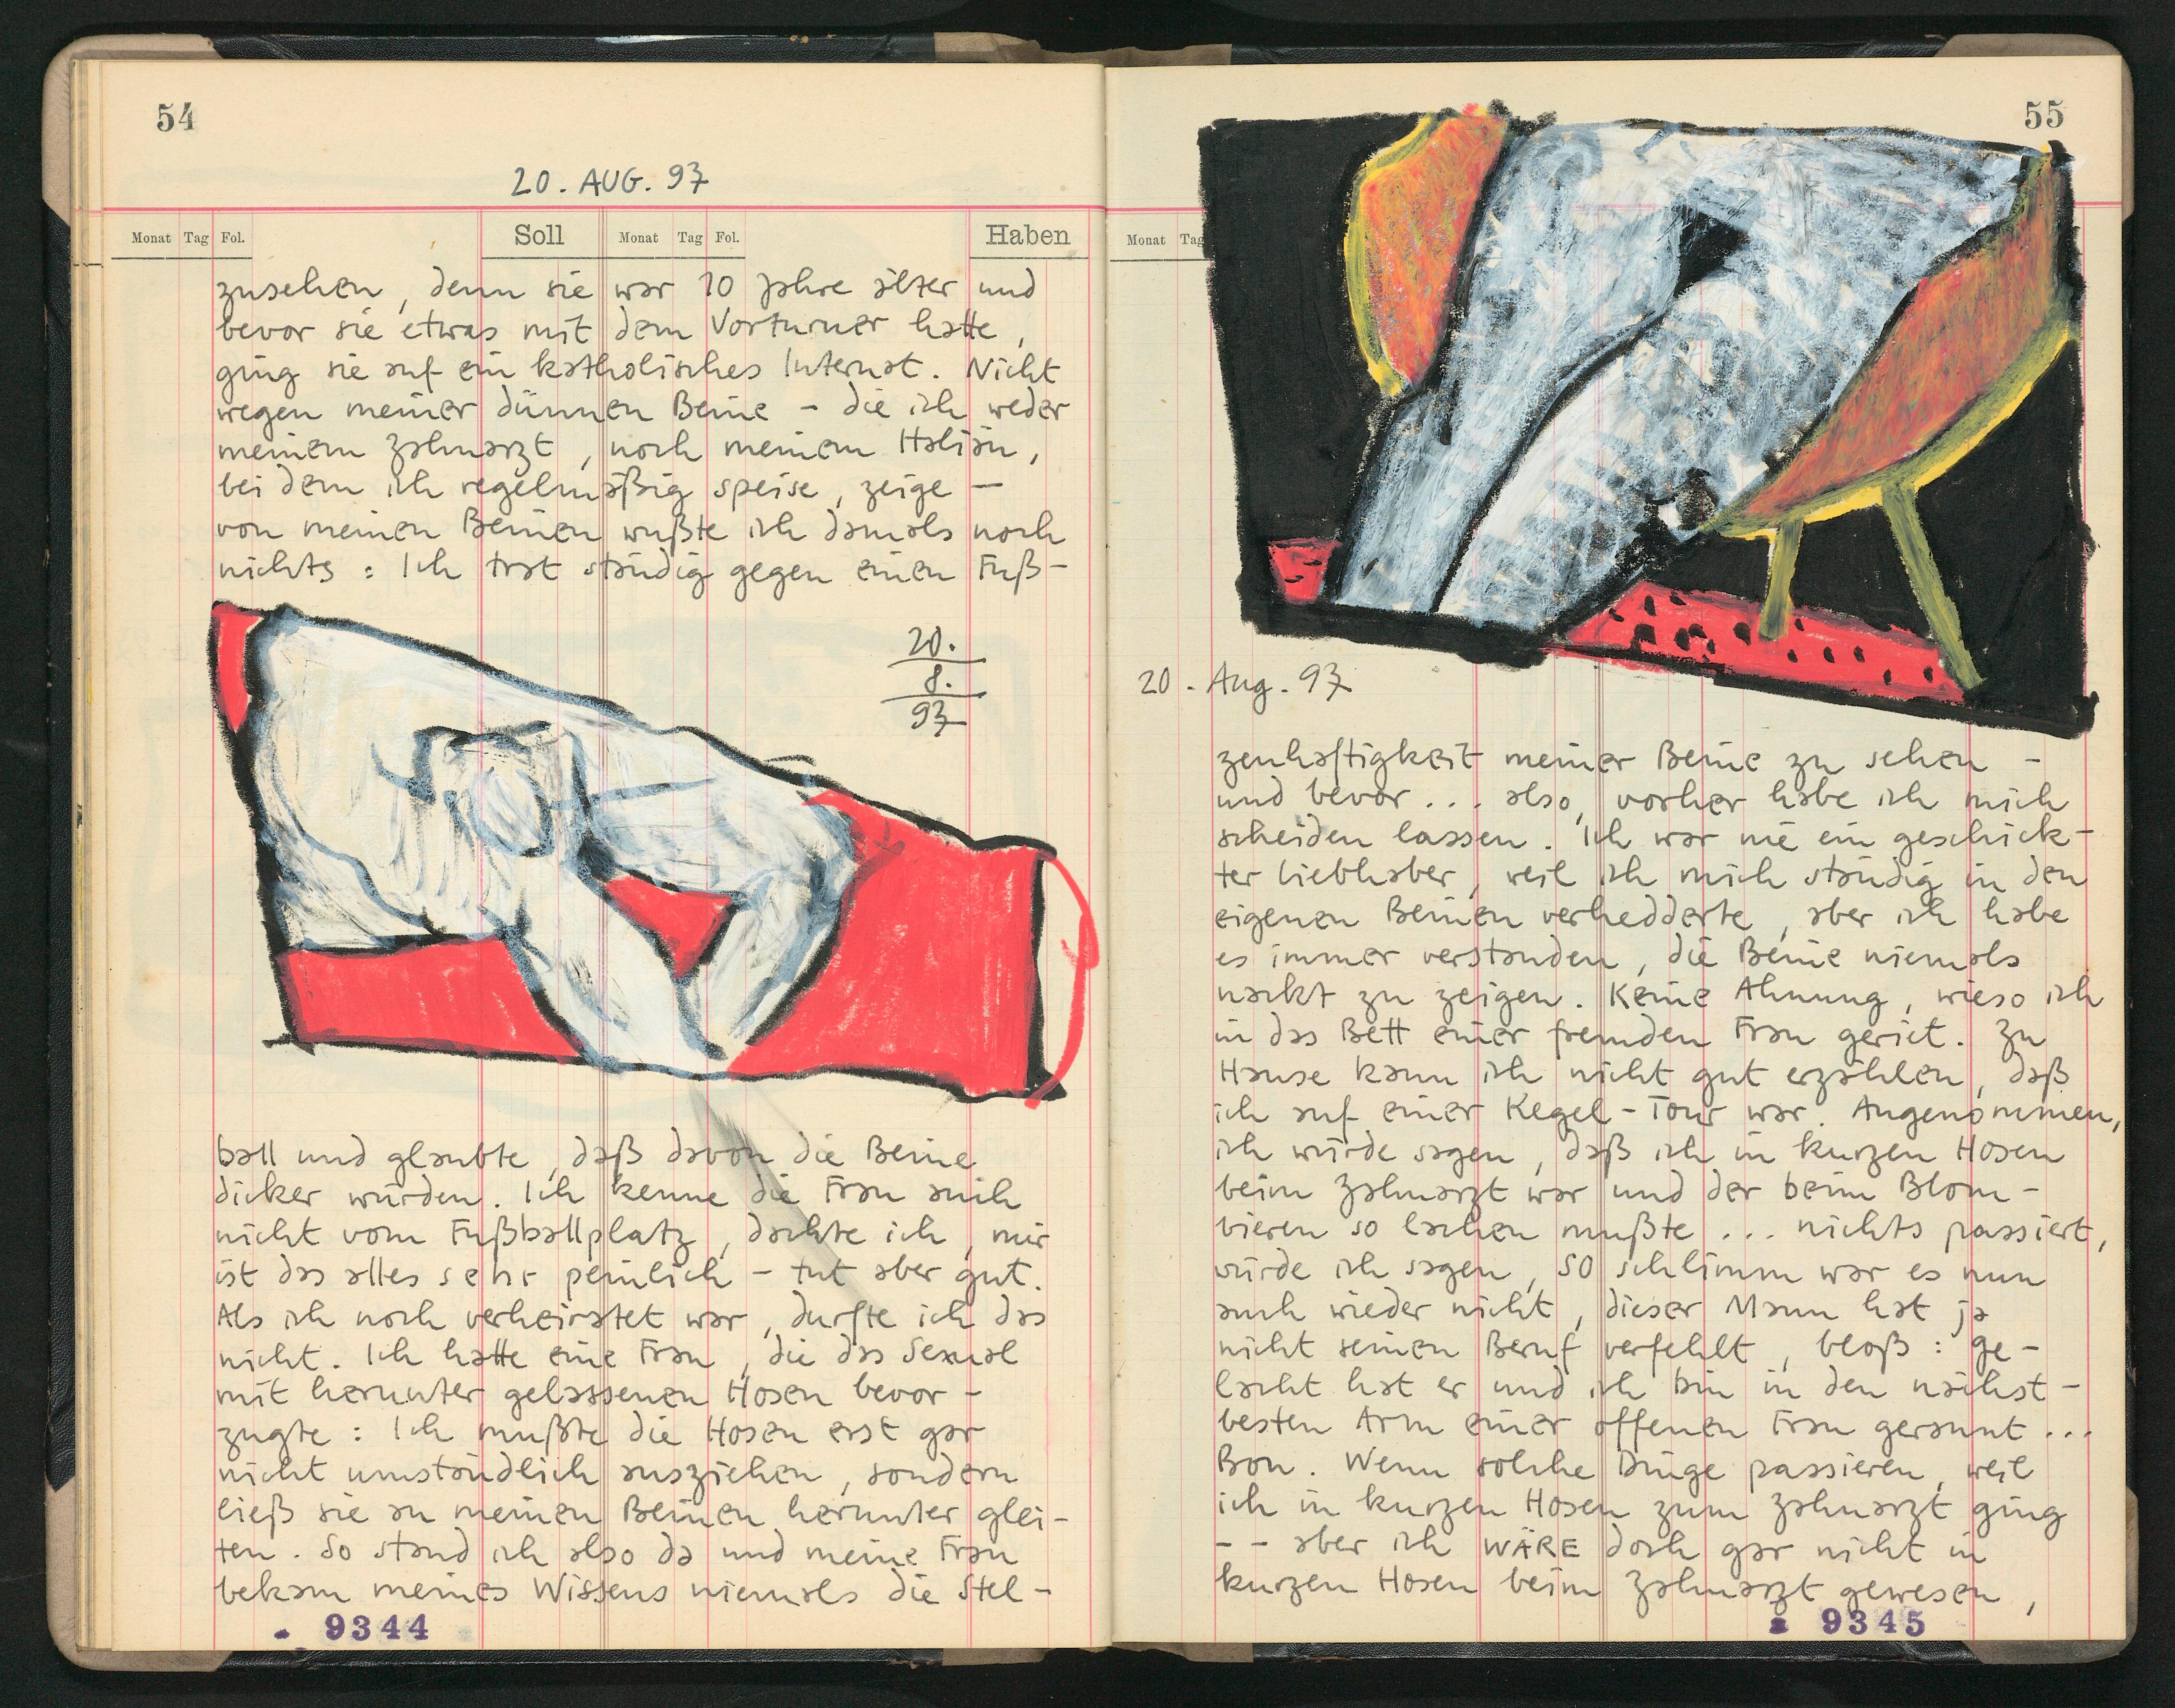 54
20. AUG. 97
Monat Tag Fol. Soll Monat Tag Fol. Haben
zusehen, denn sie war 10 Jahre älter und
bevor sie etwas mit dem Vorturner hatte,
ging sie auf ein katholisches Internat. Nicht
wegen meiner dünnen Beine – die ich weder
meinem Zahnarzt, noch meinem Italiän,
bei dem ich regelmäßig speise, zeige –
von meinen Beinen wußte ich damals noch
nichts: Ich trat ständig gegen einen Fuß-
20.
8.
97
ball und glaubte, daß davon die Beine
dicker würden. Ich kenne die Frau auch
nicht vom Fußballplatz, dachte ich, mir
ist das alles sehr peinlich – tut aber gut.
Als ich noch verheiratet war, durfte ich das
nicht. Ich hatte eine Frau, die das Sexual
mit herunter gelassenen Hosen bevor-
zugte: Ich mußte die Hosen erst gar
nicht umständlich ausziehen, sondern
ließ sie an meinen Beinen herunter glei-
ten. So stand ich also da und meine Frau
bekam meines Wissens niemals die Stel-
9344
55
Monat Tag
20. Aug. 97
zenhaftigkeit meiner Beine zu sehen –
und bevor... also, vorher habe ich mich
scheiden lassen. Ich war nie ein geschick-
ter Liebhaber, weil ich mich ständig in den
eigenen Beinen verhedderte, aber ich habe
es immer verstanden, die Beine niemals
nackt zu zeigen. Keine Ahnung, wieso ich
in das Bett einer fremden Frau geriet. Zu
Hause kann ich nicht gut erzählen, daß
ich auf einer Kegel-Tour war. Angenommen,
ich würde sagen, daß ich in kurzen Hosen
beim Zahnarzt war und der beim Blom-
bieren so lachen mußte... nichts passiert,
würde ich sagen, SO schlimm war es nun
auch wieder nicht, dieser Mann hat ja
nicht seinen Beruf verfehlt, bloß: ge-
lacht hat er und ich bin in den nächst-
besten Arm einer offenen Frau gerannt...
Bon. Wenn solche Dinge passieren, weil
ich in kurzen Hosen zum Zahnarzt ging
-- aber ich WÄRE doch gar nicht in
kurzen Hosen beim Zahnarzt gewesen,
9345